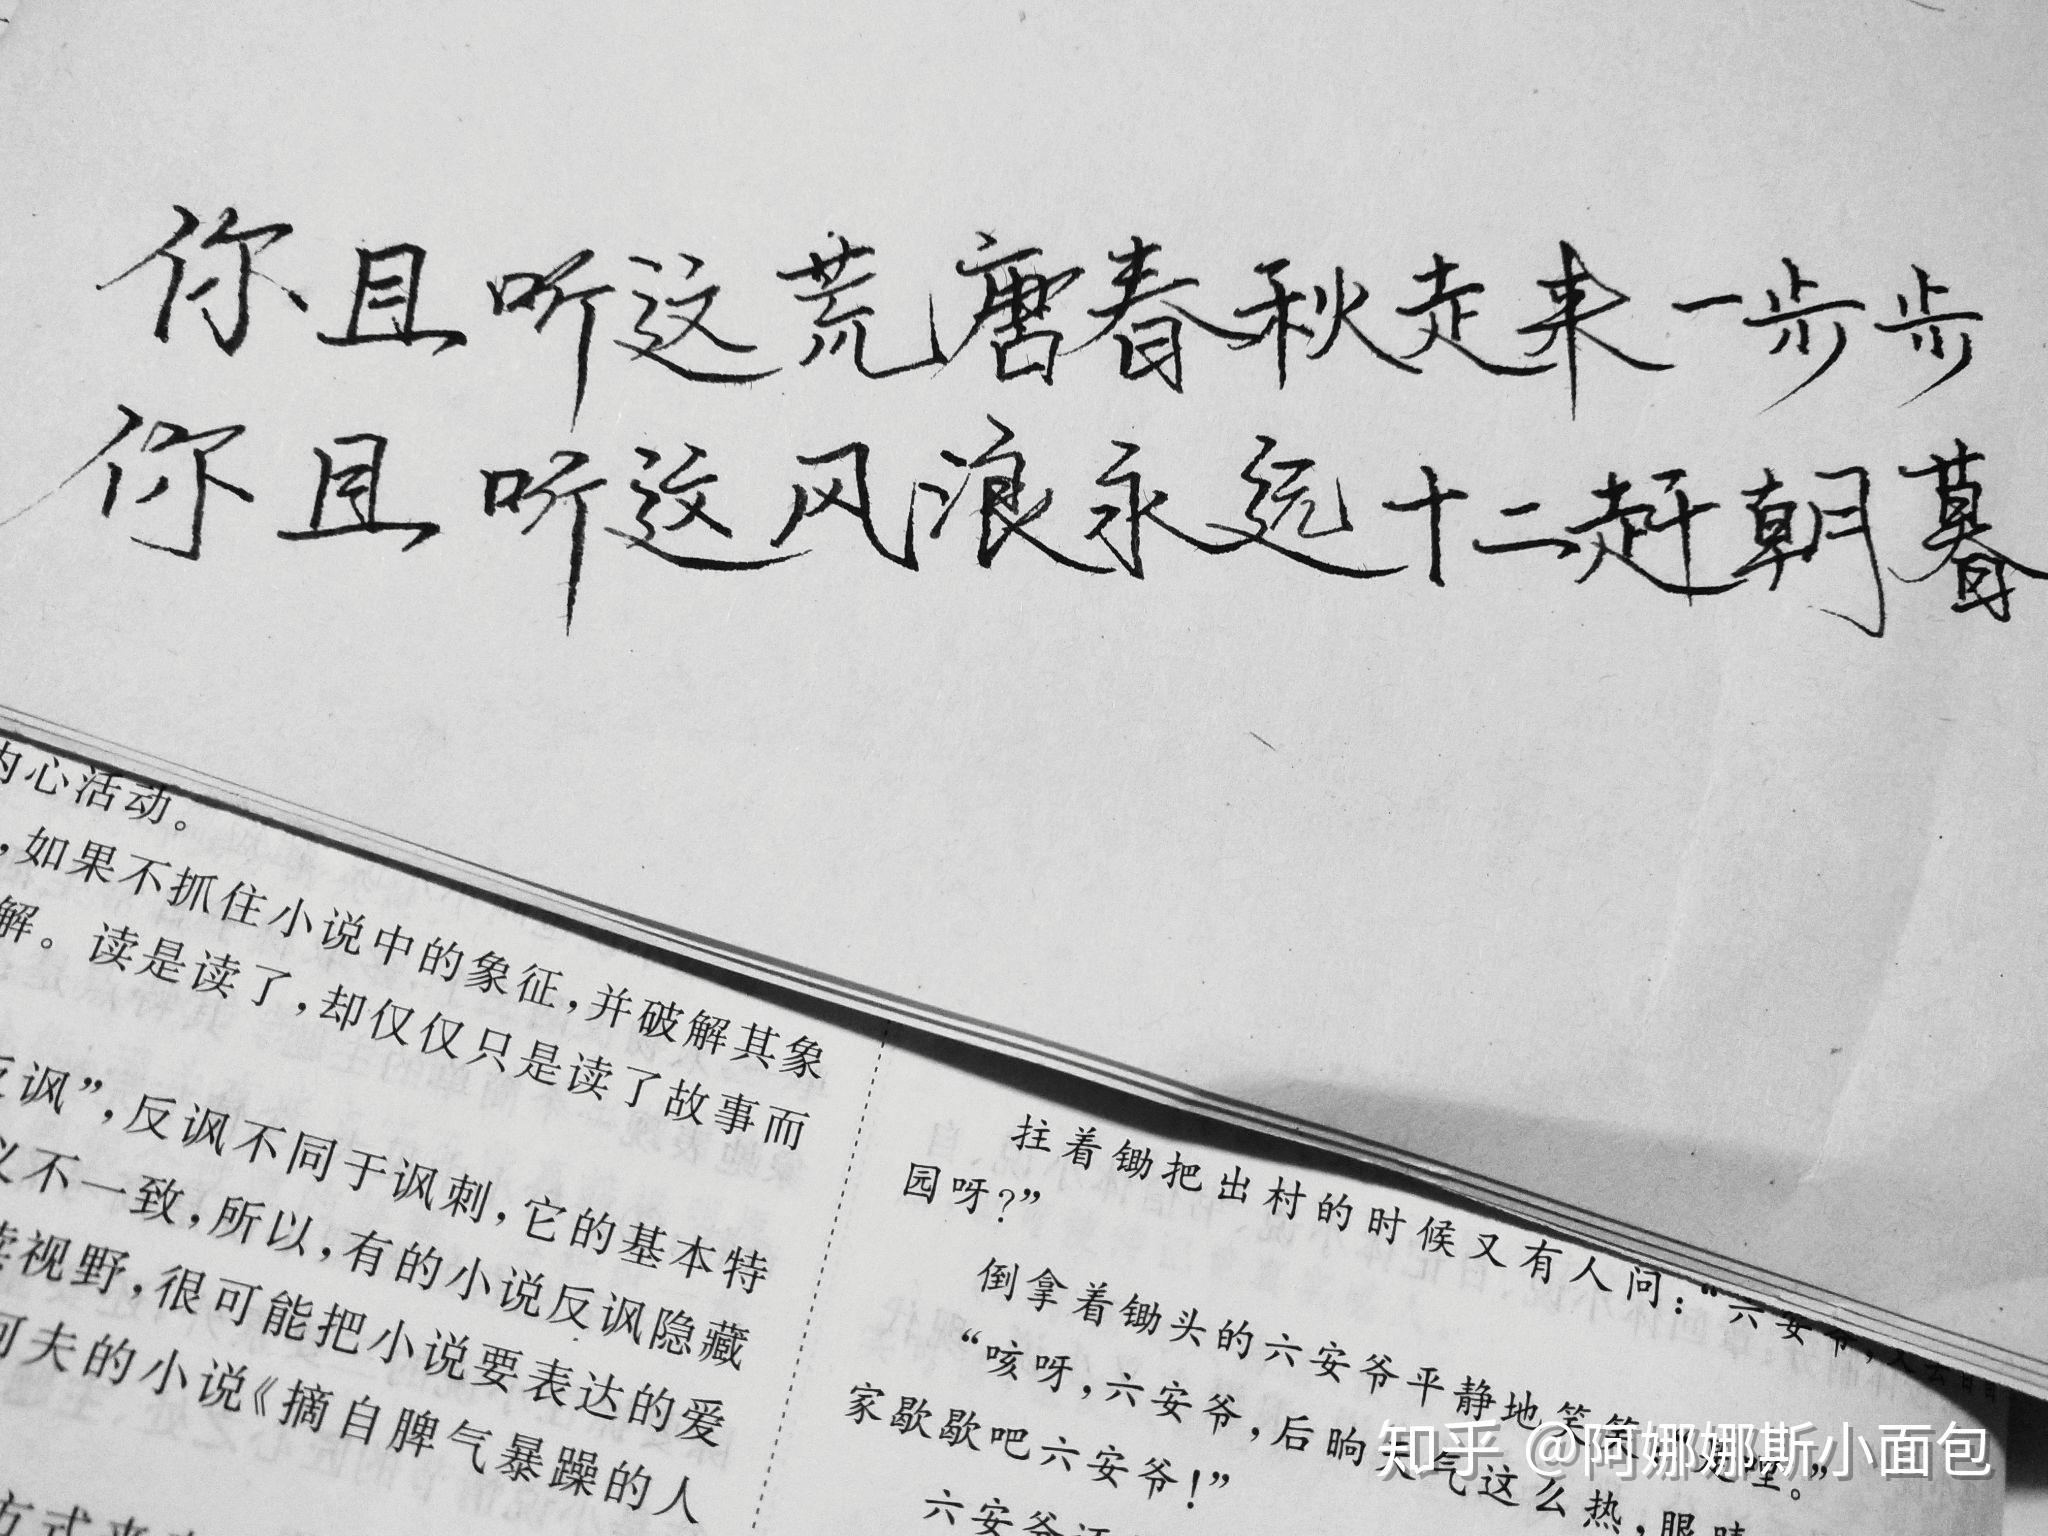 你且听这荒唐春秋走来一步步
你且听这风浪永远十二赶朝暮
内心活动。
，如果不抓住小说中的象征，并破解其象
解。读是读了，却仅仅只是读了故事而
反讽”，反讽不同于讽刺，它的基本特
义不一致，所以，有的小说反讽隐藏
视野，很可能把小说要表达的爱
可夫的小说《摘自脾气暴躁的人
方式来
拄着锄把出村的时候又有人问：“六安爷，又去
园呀？”
倒拿着锄头的六安爷平静地笑笑
“咳呀，六安爷，后晌天气这么热，眼睛
家歇歇吧六安爷！”
六安爷还
知乎 @阿娜娜斯小面包